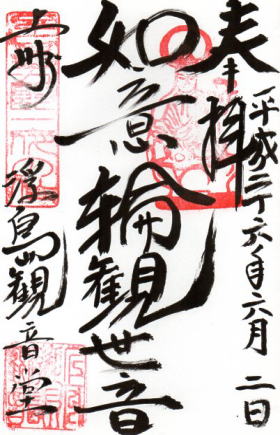 奉拝
平成二十六年六月二日
如意輪観世音
上州
浮島観音堂